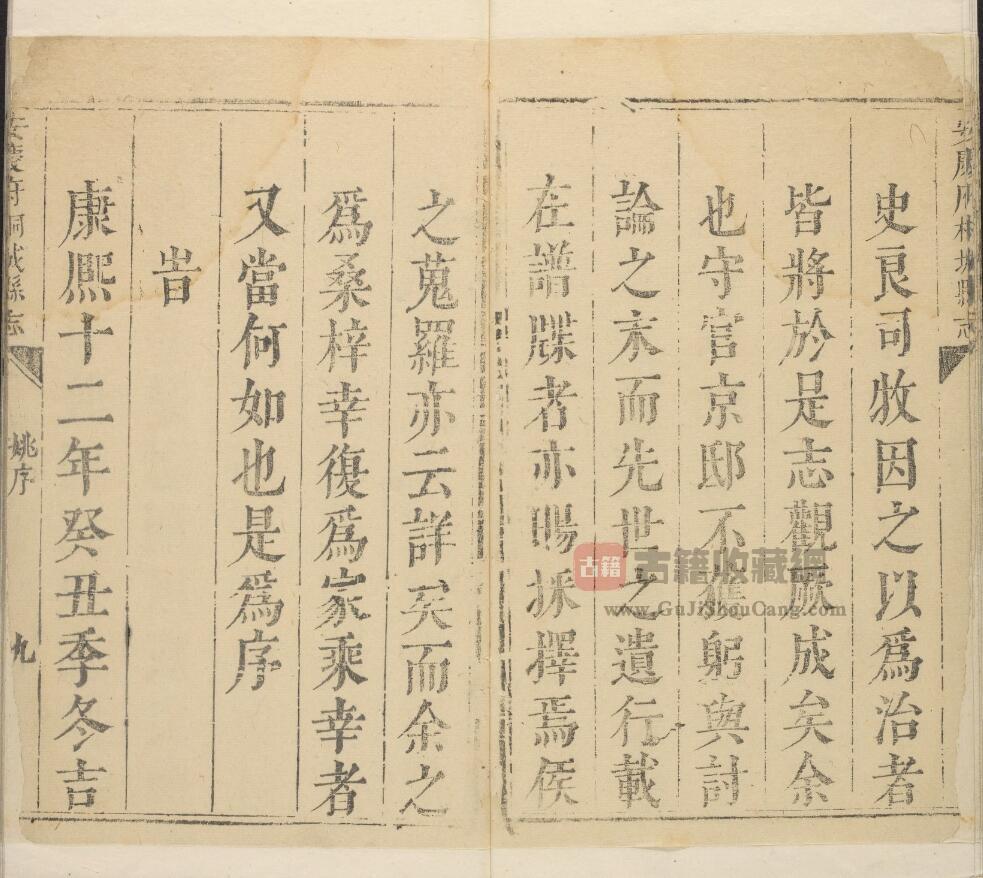 安慶府桐城縣志
史良司牧因之以爲治者
皆將於是志觀厥成矣余
也守官京邸不獲躬與討
論之末而先世之遺行載
在譜牒者亦賜採擇焉侯
之蒐羅亦云詳矣而余之
爲桑梓幸復爲家乘幸者
又當何如也是爲序
旹
康熙十二年癸丑季冬吉
安慶府桐城縣志 姚序 九
古籍 古籍收藏网
www.GuJiShouCang.com